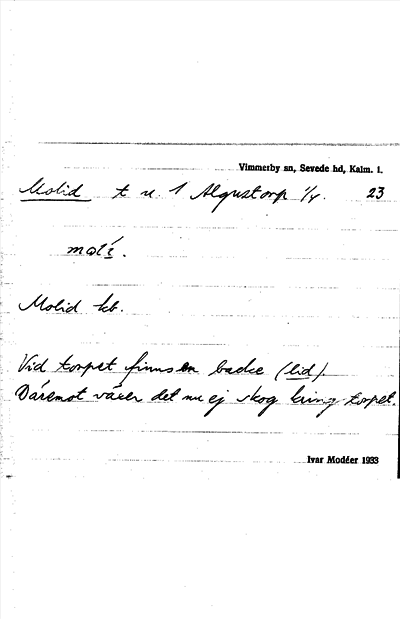 Vimmerby sn, Sevede hd, Kalm. l.
Molid t u. 1 Algustorp 1/4. 23
Molid kb.
Vid torpet finns en backe (lid).
Däremot växer det nu ej skog kring torpet.
Ivar Modéer 1933